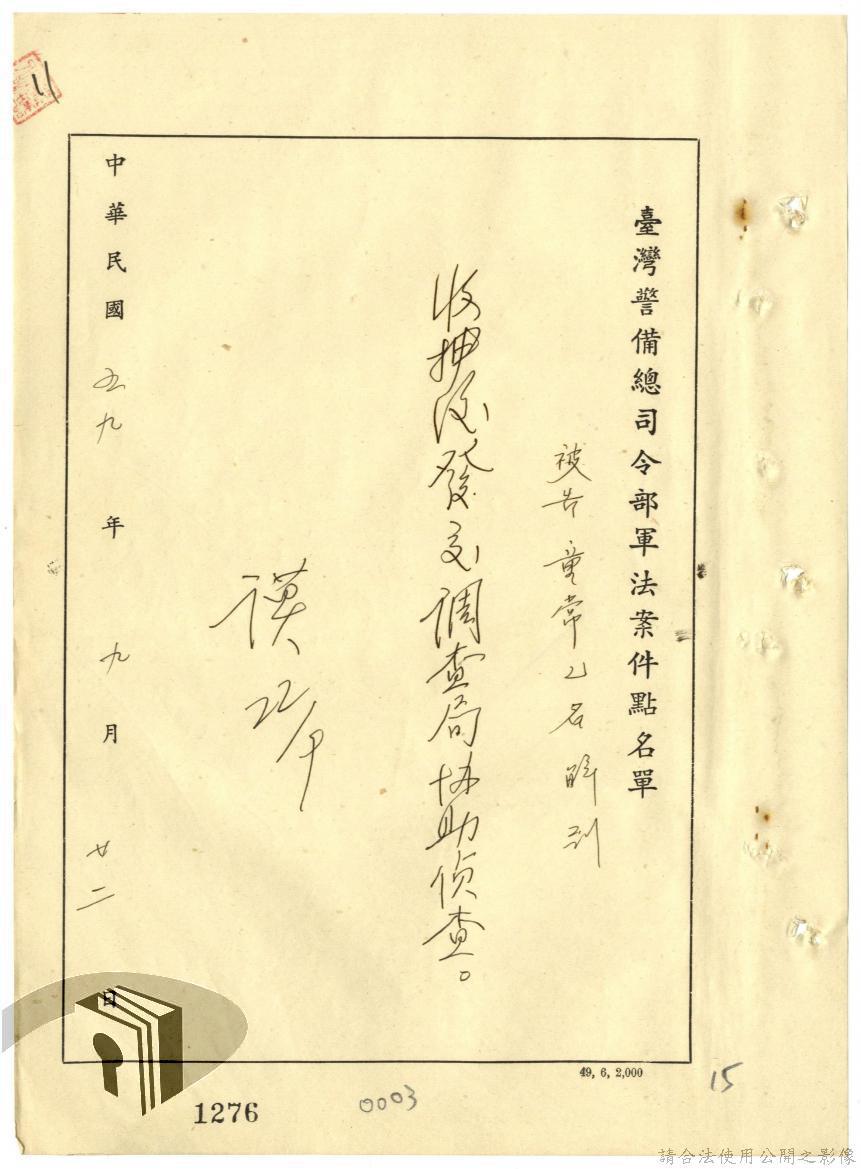 11
臺灣警備總司令部軍法案件點名單
被告童常乙名解到
收押後發交調查局協助偵查。
謨 22/午
中華民國五九年九月廿二日
49, 6, 2,000
15
0003
1276
請合法使用公開之影像